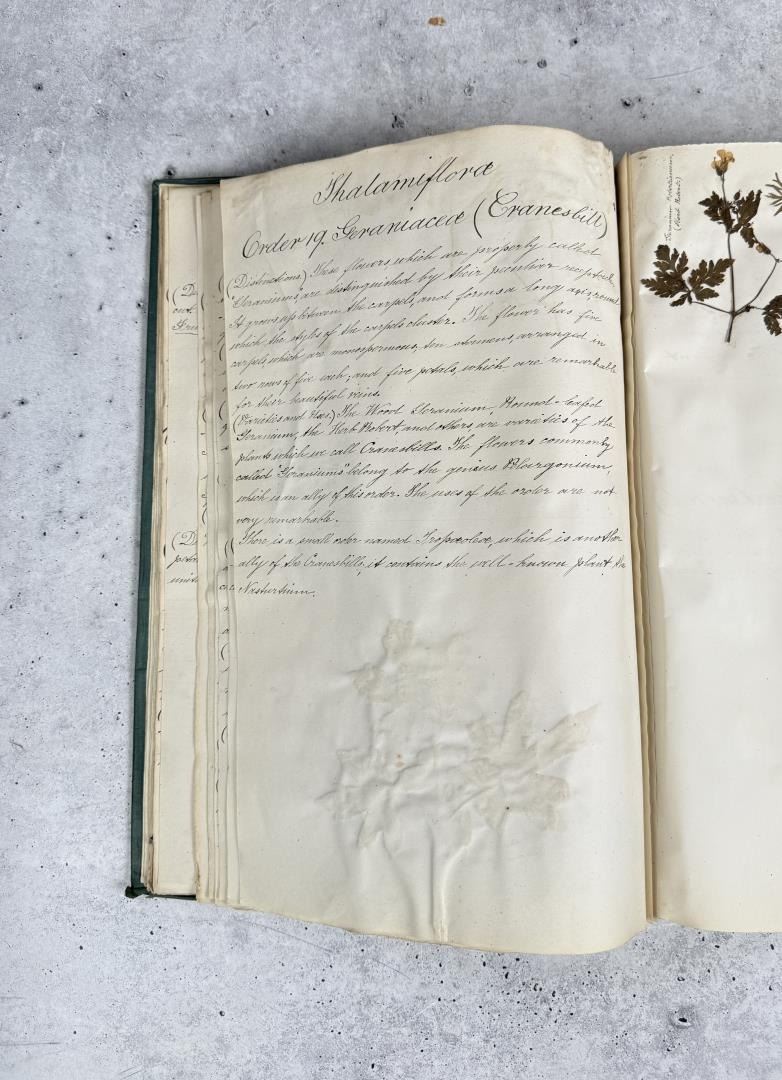 Thalamifloræ
Order 19. Geraniaceæ (Cranesbill)
(Distinctions.) Those flowers which are properly called
"Geraniums", are distinguished by their peculiar receptacle.
It grows up between the carpels, and forms a long axis, round
which the styles of the carpels cluster. The flower has five
carpels, which are monospermous, ten stamens, arranged in
two rows of five each, and five petals, which are remarkable
for their beautiful veins.
(Varieties and Uses.) The Wood Geranium, Round-leafed
Geranium, the Herb Robert, and others, are varieties of the
plants which we call Cranesbills. The flowers commonly
called "Geraniums" belong to the genius Pelargonium,
which is an ally of this order. The uses of the order are not
very remarkable.
There is a small order named Tropæoleæ, which is another
ally of the Cranesbills; it contains the well-known plant, the
Nasturtium.
(D
out.
(D
peta
unit
Geranium Robertianum,
(Herb Robert)